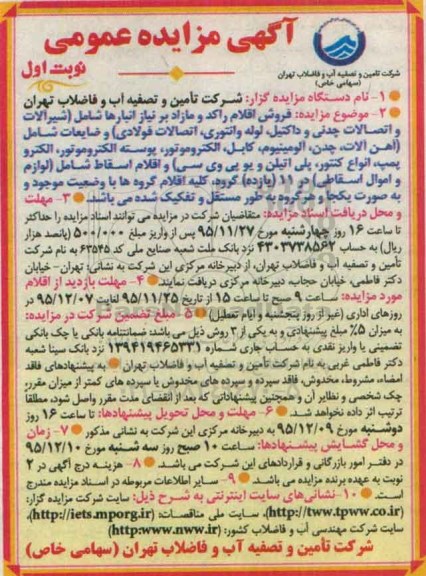 آگهی مزایده عمومی
نوبت اول
شرکت تأمین و تصفیه آب و فاضلاب تهران
(سهامی خاص)
۱- نام دستگاه مزایده گزار: شرکت تأمین و تصفیه آب و فاضلاب تهران
۲- موضوع مزایده: فروش اقلام راکد و مازاد بر نیاز انبارها شامل (شیرآلات
و اتصالات چدنی و داکتیل، لوله وانتوری، اتصالات فولادی) و ضایعات شامل
(آهن آلات، چدن، آلومینیوم، کابل، الکتروموتور، پوسته الکتروموتور، الکترو
پمپ، انواع کنتور، پلی اتیلن و یو پی وی سی) و اقلام اسقاط شامل (لوازم
و اموال اسقاطی) در ۱۱ (یازده) گروه، کلیه اقلام گروه ها با وضعیت موجود و
به صورت یکجا در گروه به طور مستقل و تفکیک شده می باشد. ۳- مهلت
و محل دریافت اسناد مزایده: متقاضیان شرکت در مزایده می توانند اسناد مزایده را حداکثر
تا ساعت ۱۶ روز چهارشنبه مورخ ۹۵/۱۱/۲۷ پس از واریز مبلغ ۵۰۰/۰۰۰ (پانصد هزار
ریال) به حساب ۴۳۰۷۷۳۸۵۶۲ نزد بانک ملت شعبه صنایع ملی کد ۶۳۵۴۵ به نام شرکت
تأمین و تصفیه آب و فاضلاب تهران، از دبیرخانه مرکزی این شرکت به نشانی: تهران- خیابان
دکتر فاطمی، خیابان حجاب، دبیرخانه مرکزی دریافت نمایند. ۴- مهلت بازدید از اقلام
مورد مزایده: ساعت ۹ صبح تا ساعت ۱۵ از تاریخ ۹۵/۱۱/۲۵ لغایت ۹۵/۱۲/۰۷ در
روزهای اداری (غیر از روز پنجشنبه و ایام تعطیل) ۵- مبلغ تضمین شرکت در مزایده:
به میزان ۵٪ مبلغ پیشنهادی و به یکی از ۳ روش ذیل می باشد: ضمانتنامه بانکی یا چک بانکی
تضمینی یا واریز نقدی به حساب جاری شماره ۱۳۹۴۱۹۴۶۵۳۳۱ نزد بانک سینا شعبه
دکتر فاطمی غربی به نام شرکت تأمین و تصفیه آب و فاضلاب تهران به پیشنهادهای فاقد
امضاء، مشروط، مخدوش، فاقد سپرده و سپرده های مخدوش یا سپرده های کمتر از میزان مقرر،
چک شخصی و نظایر آن و همچنین پیشنهاداتی که بعد از انقضای مدت مقرر واصل شود، مطلقا
ترتیب اثر داده نخواهد شد. ۶- مهلت و محل تحویل پیشنهادها: تا ساعت ۱۶ روز
دوشنبه مورخ ۹۵/۱۲/۰۹ به دبیرخانه مرکزی این شرکت به نشانی مذکور ۷- زمان
و محل گشایش پیشنهادها: ساعت ۱۰ صبح روز سه شنبه مورخ ۹۵/۱۲/۱۰
در دفتر امور بازرگانی و قراردادهای این شرکت می باشد. ۸- هزینه درج آگهی در ۲
نوبت به عهده برنده مزایده می باشد. ۹- سایر اطلاعات مربوطه در اسناد مزایده مندرج
است. ۱۰- نشانی های سایت اینترنتی به شرح ذیل: سایت شرکت مزایده گزار:
(http://tww.tpww.co.ir)، سایت ملی مناقصات: (http://iets.mporg.ir)،
سایت شرکت مهندسی آب و فاضلاب کشور: (http:www.nww.ir)
شرکت تأمین و تصفیه آب و فاضلاب تهران (سهامی خاص)